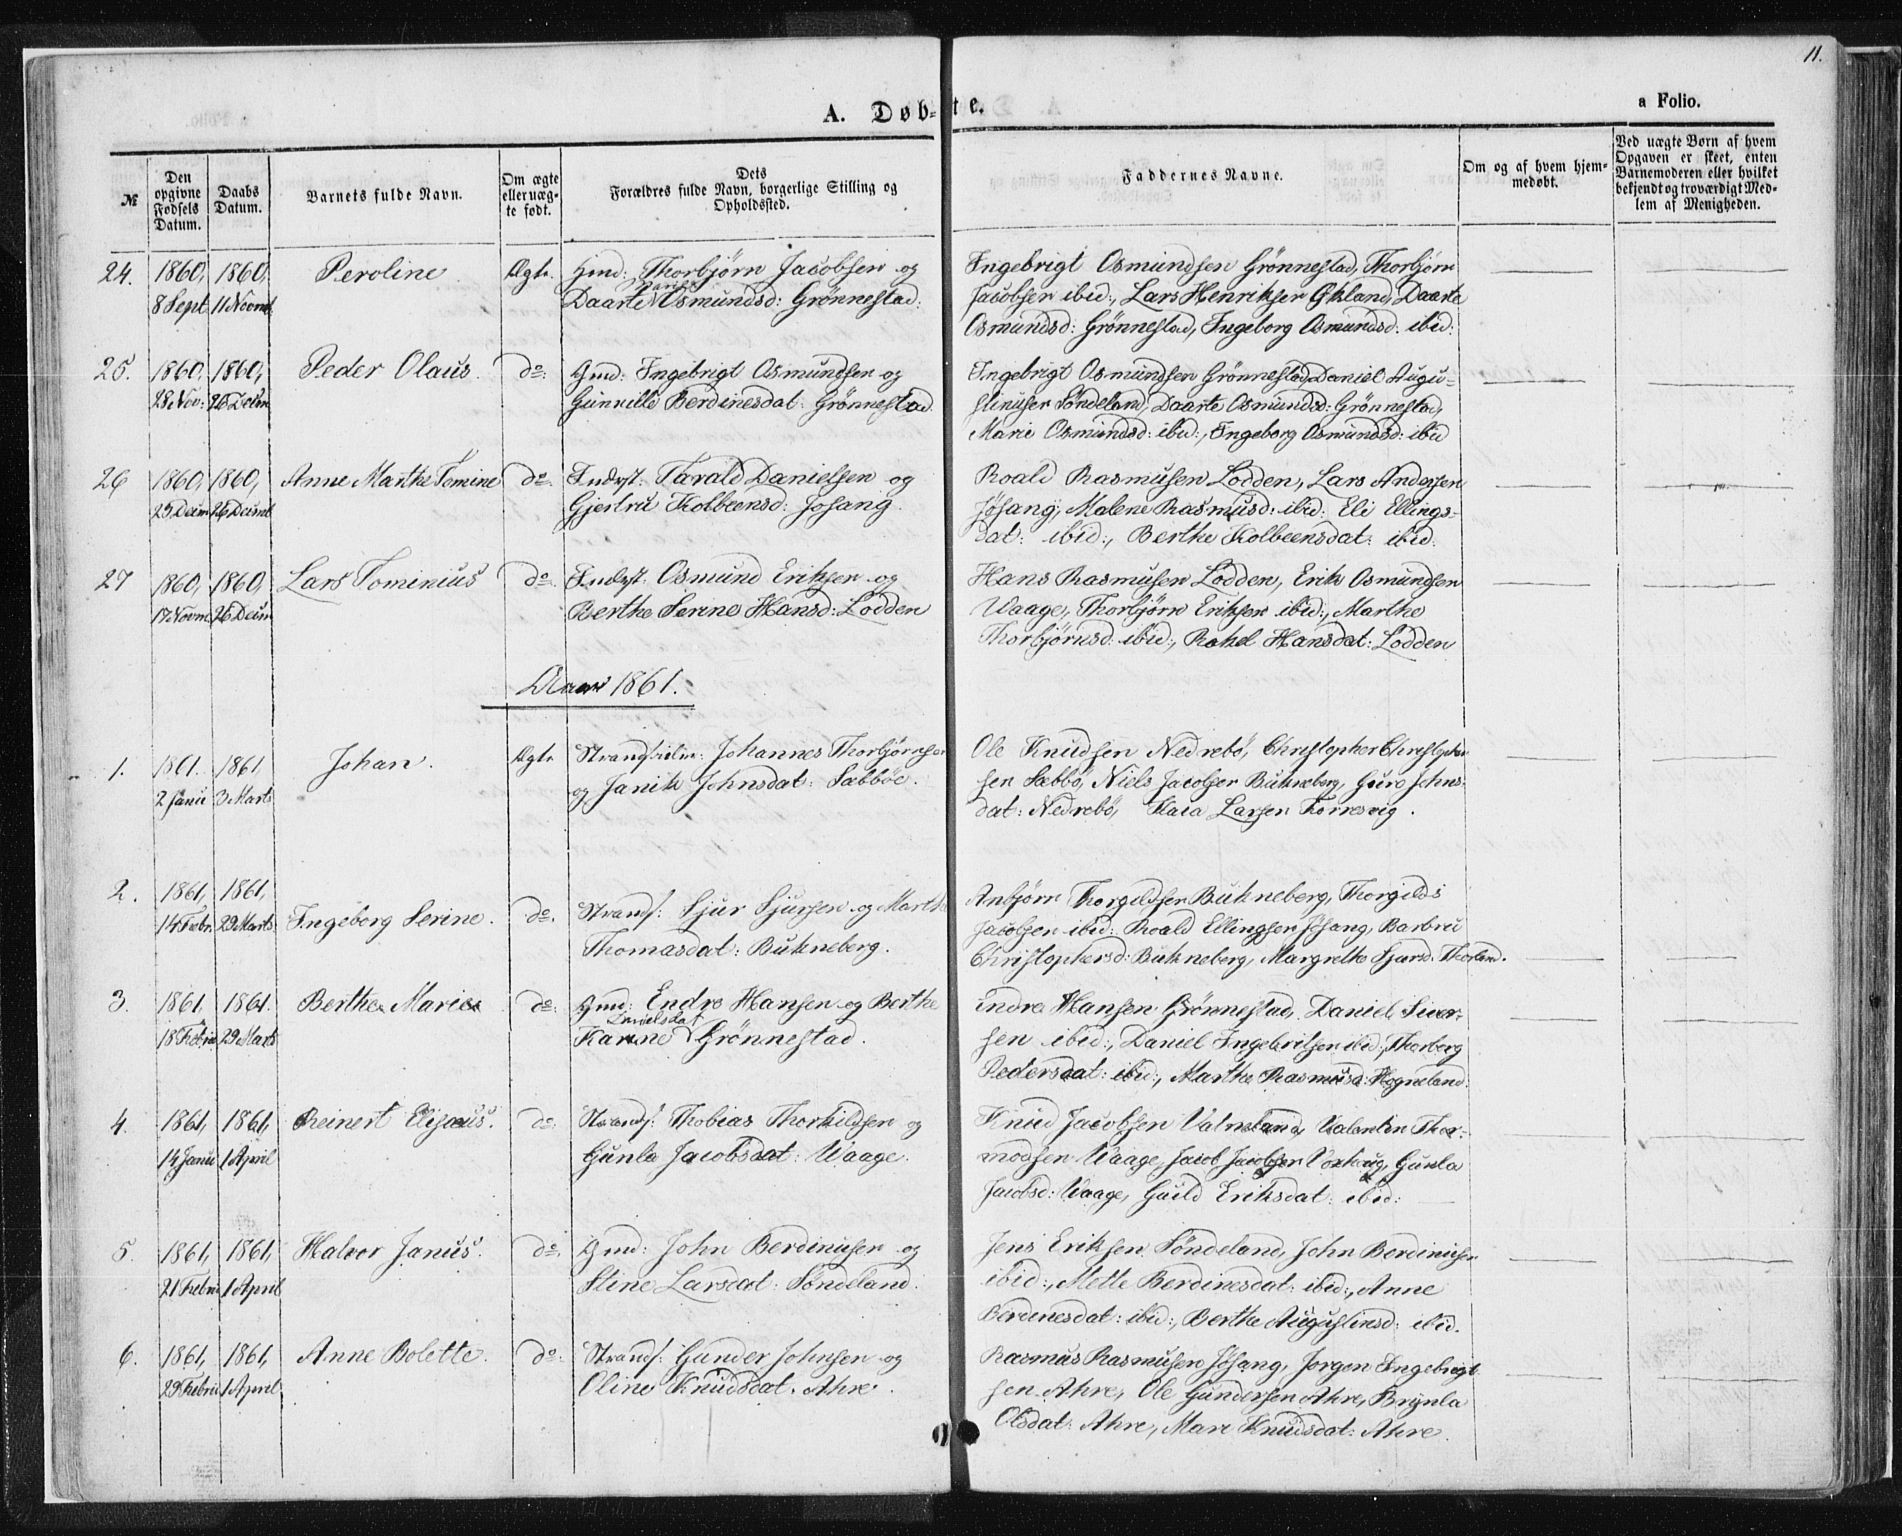 11.
A. Døbte.
a Folio.
№
Den opgivne Fødsels Datum.
Daabs Datum.
Barnets fulde Navn.
Om ægte eller uægte født.
Dets Forældres fulde Navn, borgerlige Stilling og Opholdssted.
Faddernes Navne.
Om og af hvem hjemmedøbt.
Ved uægte Børn af hvem Opgaven er skeet, enten Barnemoderen eller hvilket bekjendt og troværdigt Medlem af Menigheden.
24. 1860, 8 Sept 1860, 11 Novmb Peroline Ægte Gmd: Thorbjørn Jacobsen og
Daarte Marie Osmundsd: Grønnestad.
Ingebrigt Osmundsen Grønnestad, Thorbjørn
Jacobsen ibid:, Lars Henriksen Økland, Daarte
Osmundsd: Grønnestad, Ingeborg Osmundsd: ibid:
25. 1860, 28 Nov: 1860, 26 Decbr Peder Olaus. do: Gmd: Ingebrigt Osmundsen og
Gunnille Berdinesdat: Grønnestad
Ingebrigt Osmundsen Grønnestad, Daniel Augu-
stinusen Søndeland, Daarte Osmundsd: Grønnestad,
Marie Osmundsd: ibid:, Ingeborg Osmundsd: ibid
26 1860, 1860, 26 Anne Marthe Tomine do. Inderst: Tarald Danielsen og
Gjertru Kolbeensd: Jøsang.
Roald Rasmusen Lodden, Lars Andersen
Jøsang, Malene Rasmusd: ibid: Eli Ellings-
dat: ibid:, Berthe Kolbeensdat: ibid:
27 1860, 17 Novm 1860, 26 Lars Tominius do. Inderst: Osmund Eriksen og
Berthe Serine Hansd: Lodden
Hans Rasmusen Lodden, Erik Osmundsen
Waage, Thorbjørn Eriksen ibid:, Marthe
Thorbjørnsd: ibid:, Rakel Hansdat: Lodden
Aar 1861.
1. 1861. 2 Janu 1861, 3 Marts Johan. Ægte Johannes Thorbjørnsen
og Janik Johnsdat: Sæbbøe.
Ole Knudsen Nedrebø, Christopher Christopher
sen Sæbbø, Niels Jacobsen Bukneberg, Guro Johns-
dat: Nedrebø, Kaia Larsen Torresvig.
2. 1861, 14 Febr 1861, 29 Marts Ingeborg Serine. do. Strands: Sjur Sjursen og Marthe
Thomasdat: Bukneberg.
Anbjørn Thorgildsen Bukneberg, Thorgilds
Jacobsen ibid: Roald Ellingsen Jøsang, Barbru
Christophersd: Bukneberg, Margrethe Sjursd:
3. 1861, 18 Febru 1861. 29 Marts Berthe Marie do: Gmd: Endre Hansen og Berthe
Karine Danielsdat Grønnestad.
Endre Hansen Grønnestad, Daniel Siver-
sen ibid:, Daniel Ingebritsen ibid:, Thorberg
Pedersdat: ibid:, Marthe Rasmusd: Hogneland
4. 1861, 14 Janu 1861, 1 April Reinert Elisæus. do: Strands: Thobias Thorkildsen og
Gunla Jacobsdat: Waage.
Knud Jacobsen Valneland, Valentin Thor-
modsen Waage, Jacob Jacobsen Voxhaug, Gunla
Jacobsd: Waage, Guild Eriksdat: ibid:
5. 1861, 21 Febru 1861, 1 April Halvor Janus. do. Gmd: John Berdinusen og
Stine Larsdat: Søndeland.
Jens Eriksen Søndeland, John Berdinusen
ibid:, Mette Berdinesdat: ibid:, Anne
Berdinesdat: ibid:, Berthe Augustinsd: ibid.
6. 1861, 29 Febru 1861, 1 April Anne Bolette. do: Strands: Gunder Johnsen og
Oline Knudsdat: Ahre.
Rasmus Rasmusen Jøsang, Jørgen Ingebrigt
sen Ahre, Ole Gundersen Ahre, Brynla
Olsdat: Ahre, Mari Knudsdat: Ahre.